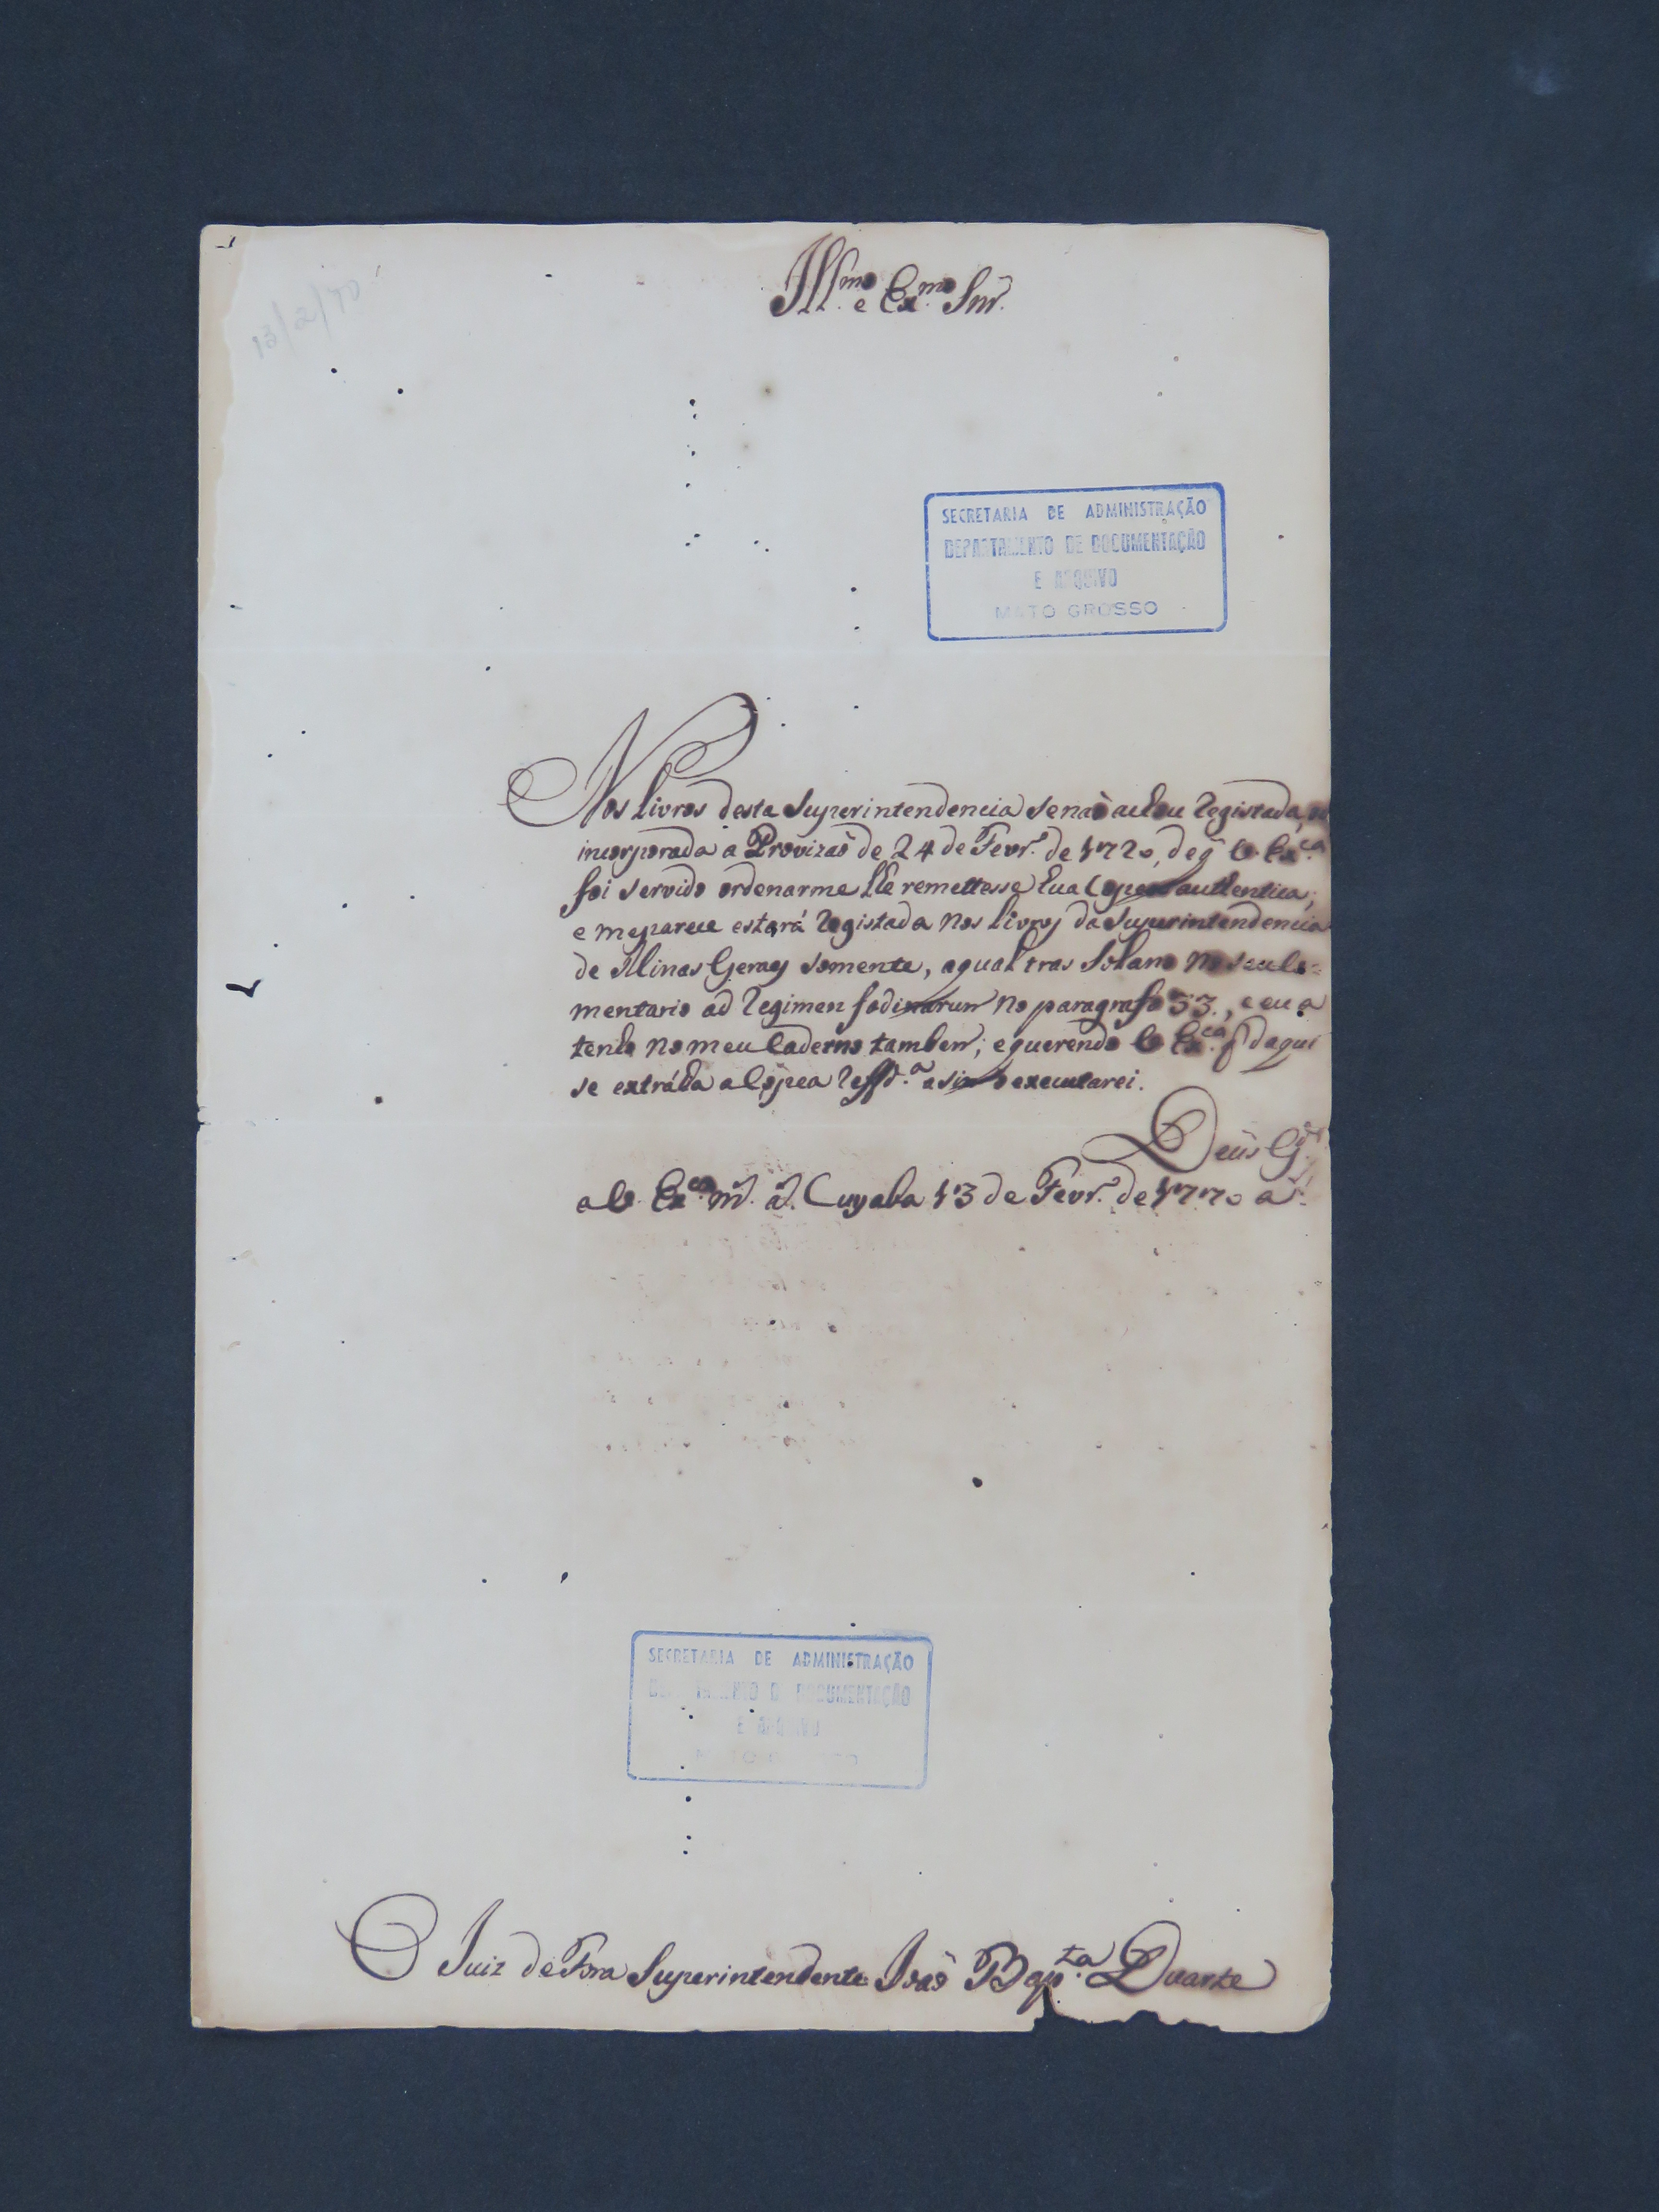 13/2/70
Ill.mo e Ex.mo Snr.
SECRETARIA DE ADMINISTRAÇÃO
DEPARTAMENTO DE DOCUMENTAÇÃO
E ARQUIVO
MATO GROSSO
Nos livros desta Superintendencia se naõ achou Registada, ou
incorporada a Provizaõ de 24 de Fevr.o de 1720, de q̃ V. Ex.ca
foi servido ordenarme lhe remettesse hua Copea authentica;
e me parece estará Registada nos livros da Superintendencia
de Minas Geraes somente, a qual tras Solano no
mentario ad Regimen fodinarum no paragrafo 33., e eu a
tenho no meu Caderno tambem; e querendo V. Ex.ca q̃ daqui
se extráha a Cópea Reffd.a asim o executarei.
Deûs G.e
a V. Ex.ca m.s a.s Cuyaba 13 de Fevr.o de 1770 a.
SECRETARIA DE ADMINISTRAÇÃO
DEPARTAMENTO DE DOCUMENTAÇÃO
E ARQUIVO
MATO GROSSO
O Juiz de Fora Superintendente Joaõ Bap.ta Duarte